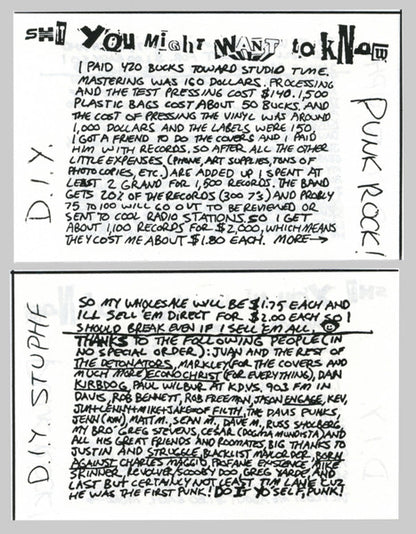 SHIT YOU MIGHT WANT to kNOW
I PAID 420 BUCKS TOWARD STUDIO TIME.
MASTERING WAS 160 DOLLARS. PROCESSING
AND THE TEST PRESSING COST $140. 1,500
PLASTIC BAGS COST ABOUT 50 BUCKS, AND
THE COST OF PRESSING THE VINYL WAS AROUND
1,000 DOLLARS AND THE LABELS WERE 150.
I GOT A FRIEND TO DO THE COVERS AND I PAID
HIM WITH RECORDS. SO AFTER ALL THE OTHER
LITTLE EXPENSES (PHONE, ART SUPPLIES, TONS OF
PHOTO COPIES, ETC.) ARE ADDED UP I SPENT AT
LEAST 2 GRAND FOR 1,500 RECORDS. THE BAND
GETS 20% OF THE RECORDS (300 7"S) AND PROBLY
75 TO 100 WILL GO OUT TO BE REVIEWED OR
SENT TO COOL RADIO STATIONS. SO I GET
ABOUT 1,100 RECORDS FOR $2,000, WHICH MEANS
THEY COST ME ABOUT $1.80 EACH. MORE→
D.I.Y.
PUNK ROCK!
SO MY WHOLESALE WILL BE $1.75 EACH AND
ILL SELL 'EM DIRECT FOR $2.00 EACH SO I
SHOULD BREAK EVEN IF I SELL 'EM ALL.
THANKS TO THE FOLLOWING PEOPLE (IN
NO SPECIAL ORDER): JUAN AND THE REST OF
THE DETONATORS, MARKLEY (FOR THE COVERS AND
MUCH MORE) ECONOCHRIST (FOR EVERYTHING), DAN
KIRBDOG, PAUL WILBUR AT KDVS. 90.3 FM IN
DAVIS, ROB BENNETT, ROB FREEMAN, JASON ENGAGE, KEV,
JIM+LENNY+MIKE+JAKE OF FILTH, THE DAVIS PUNKS,
JENN (ION), MATT M., SEAN M., DAVE M., RUSS SHOLBERG,
MY BRO' GREG STEVENS, CESAR (DOGMA MUNDISTA) AND
ALL HIS GREAT FRIENDS AND ROOMATES, BIG THANKS TO
JUSTIN AND STRUGGLE, BLACKLIST MAILORDER, BORN
AGAINST, CHARLES MAGGIO, PROFANE EXISTENCE, MIKE
SKINNER, REVOLVER/SCOOBY DOO, GREG YARDE, AND
LAST BUT CERTAINLY NOT LEAST TIM LANE CUZ
HE WAS THE FIRST PUNK! DO IT YO SELF, PUNK!
D.I.Y. STUPHE